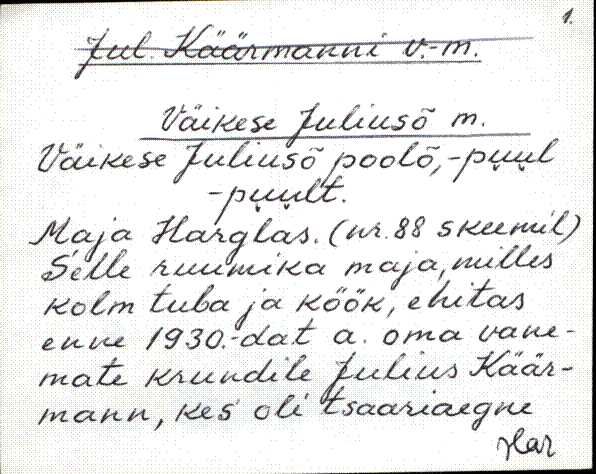 1.
Jul. Käärmanni v.-m.
Väikese Juliusõ m.
Väikese Juliusõ poolõ, -puul
-puult.
Maja Harglas. (nr. 88 skeemil)
Selle ruumika maja, milles
kolm tuba ja köök, ehitas
enne 1930.-dat a. oma vane-
mate krundile Julius Käär-
mann, kes oli tsaariaegne
Har